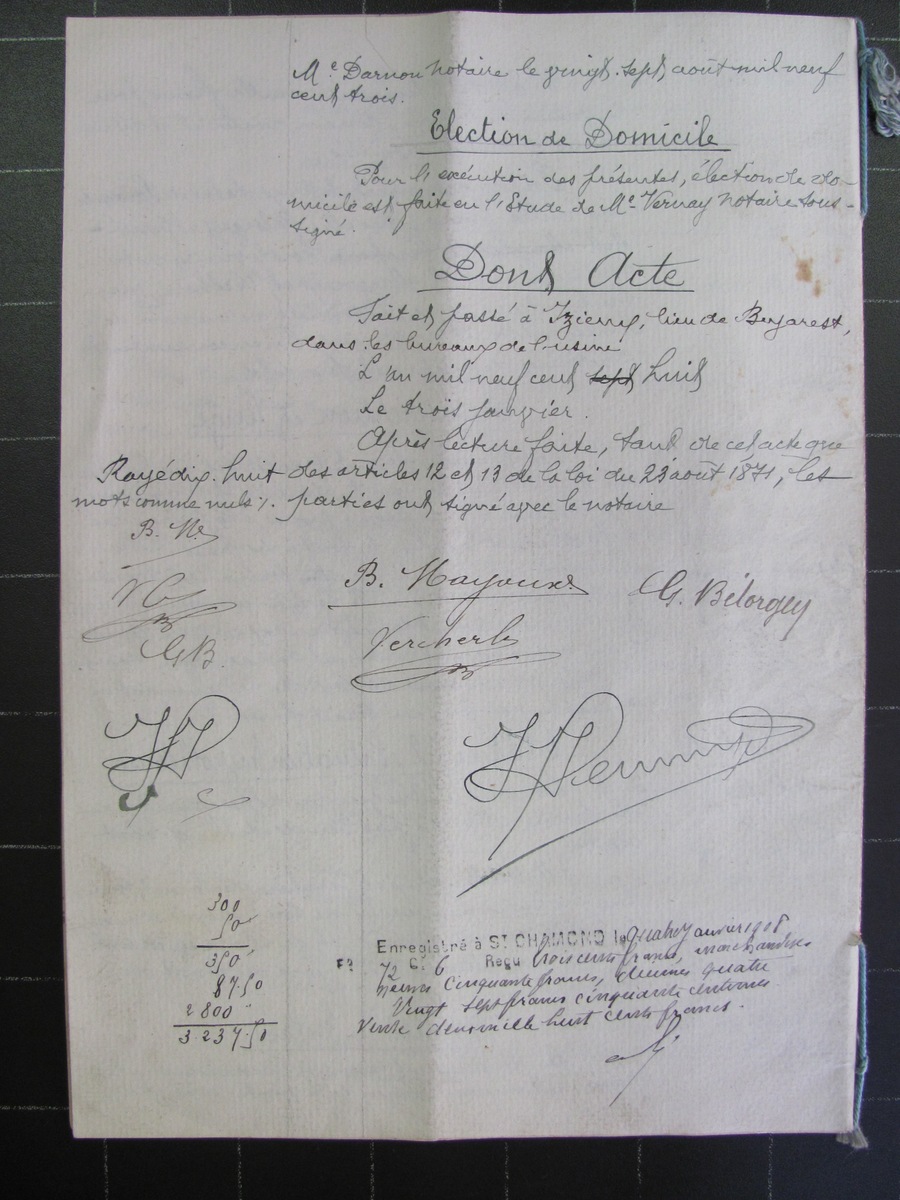 Me Darnon notaire le vingt-sept août mil neuf
cent trois.
Election de Domicile
Pour l'exécution des présentes, élection de do-
micile est faite en l'Etude de Me Vernay notaire sous-
signé.
Dont Acte
Fait et passé à Izieux, lieu de
dans les bureaux de l'usine
L'an mil neuf cent sept huit
Le trois janvier.
Après lecture faite, tant de cet acte que
des articles 12 et 13 de la loi du 23 août 1871, les
parties ont signé avec le notaire
Rayé dix-huit
mots comme nuls ./.
B. M.
B. Mayoux
G. Bélorgey
Vercherb
G.B.
300
50
350
87 50
2 800
3.237 50
Enregistré à ST CHAMOND le quatre janvier 1908
Fo 72 Co 6 Reçu trois cents francs, marchandises
neuves cinquante francs, quatre
vingt sept francs cinquante centimes
Vente deux mille huit cents francs.